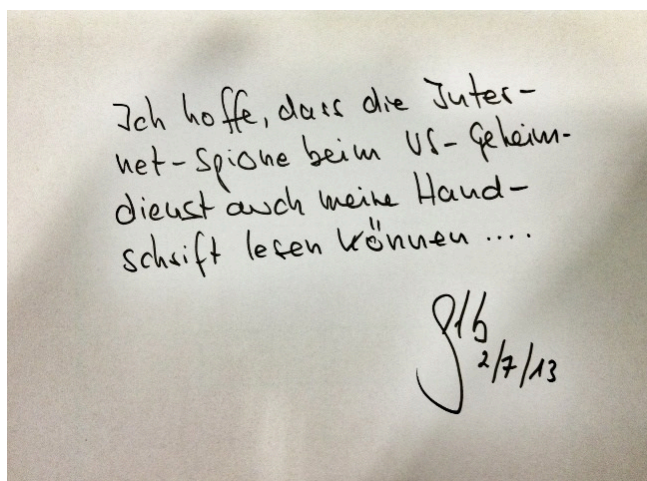 Ich hoffe, dass die Inter-
net-Spione beim US-Geheim-
dienst auch meine Hand-
schrift lesen können ....
2/7/13